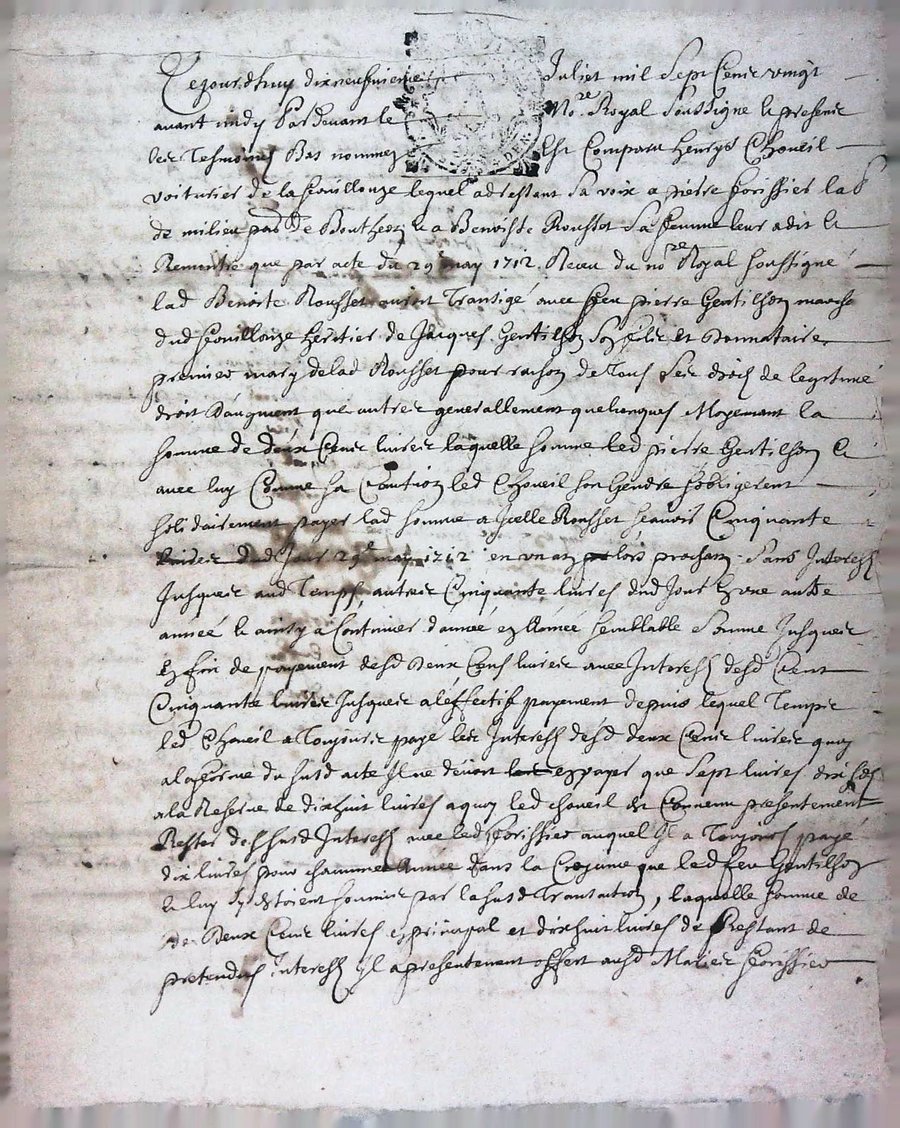 Cejourdhuy dixneufvieme Juliet mil Sept Cent vingt
avant midy Pardevant le No.re Royal Soussigne le presence
des Tesmoins Bas nommez Est Comparu henrys Choveil
voiturier de la fouillouze lequel adressant Sa voix a pierre forissier lab
de milieu parr de Boutheon & a Benoiste Rousset Sa femme leur a dit &
Remontre que par acte du 29e may 1712 Receu du no.re Royal soussigné
lad Benoite Rousset auroit Transigé avec feu pierre Gentilhon marche
dud fouillouze heritier de Jacques Gentilhon Son et Donnataire
premier mary delad Rousset pour raison de Tous Ses droits de legitime
droit Daugment que autres generallement quelconques Moyennant la
somme de deux Cent livres laquelle somme led pierre Gentilhon &
avec luy Comme sa Caution led Choveil son Gendre sobligerent
solidairement payer lad somme a Jcelle Rousset scavoir Cinquante
livres dud Jour 29e may 1712 en un an lors prochain Sans Interests
Jusques aud Temps, autres Cinquante livres dud Jour En une autre
année & ainsy a Continuer dannée en Année semblable Somme Jusques
En fin de payement desd Deux Cens livres avec Interests desd Cent
Cinquante livres Jusques a léffectif payement depuis lequel Temps
led Choveil a Toujours payé les Interests désd deux Cent livres quoy
a la forme du susd acte Il ne devoit en payer que Sept livres dix sols
a la Reserve de dixhuit livres a quoy led Choveil Est Convenu presentement
Rester des susd Interests avec led forissier auquel Il a Toujours payé
dix livres pour chacune Année Dans la Croyance que led feu Gentilhon
& luy sy Estoient soumis par la susd Transaction, laquelle somme de
de Deux Cent livres en principal et dixhuit livres de Restant de
pretendus Interests Il a presentement offert ausd Mariés forissier